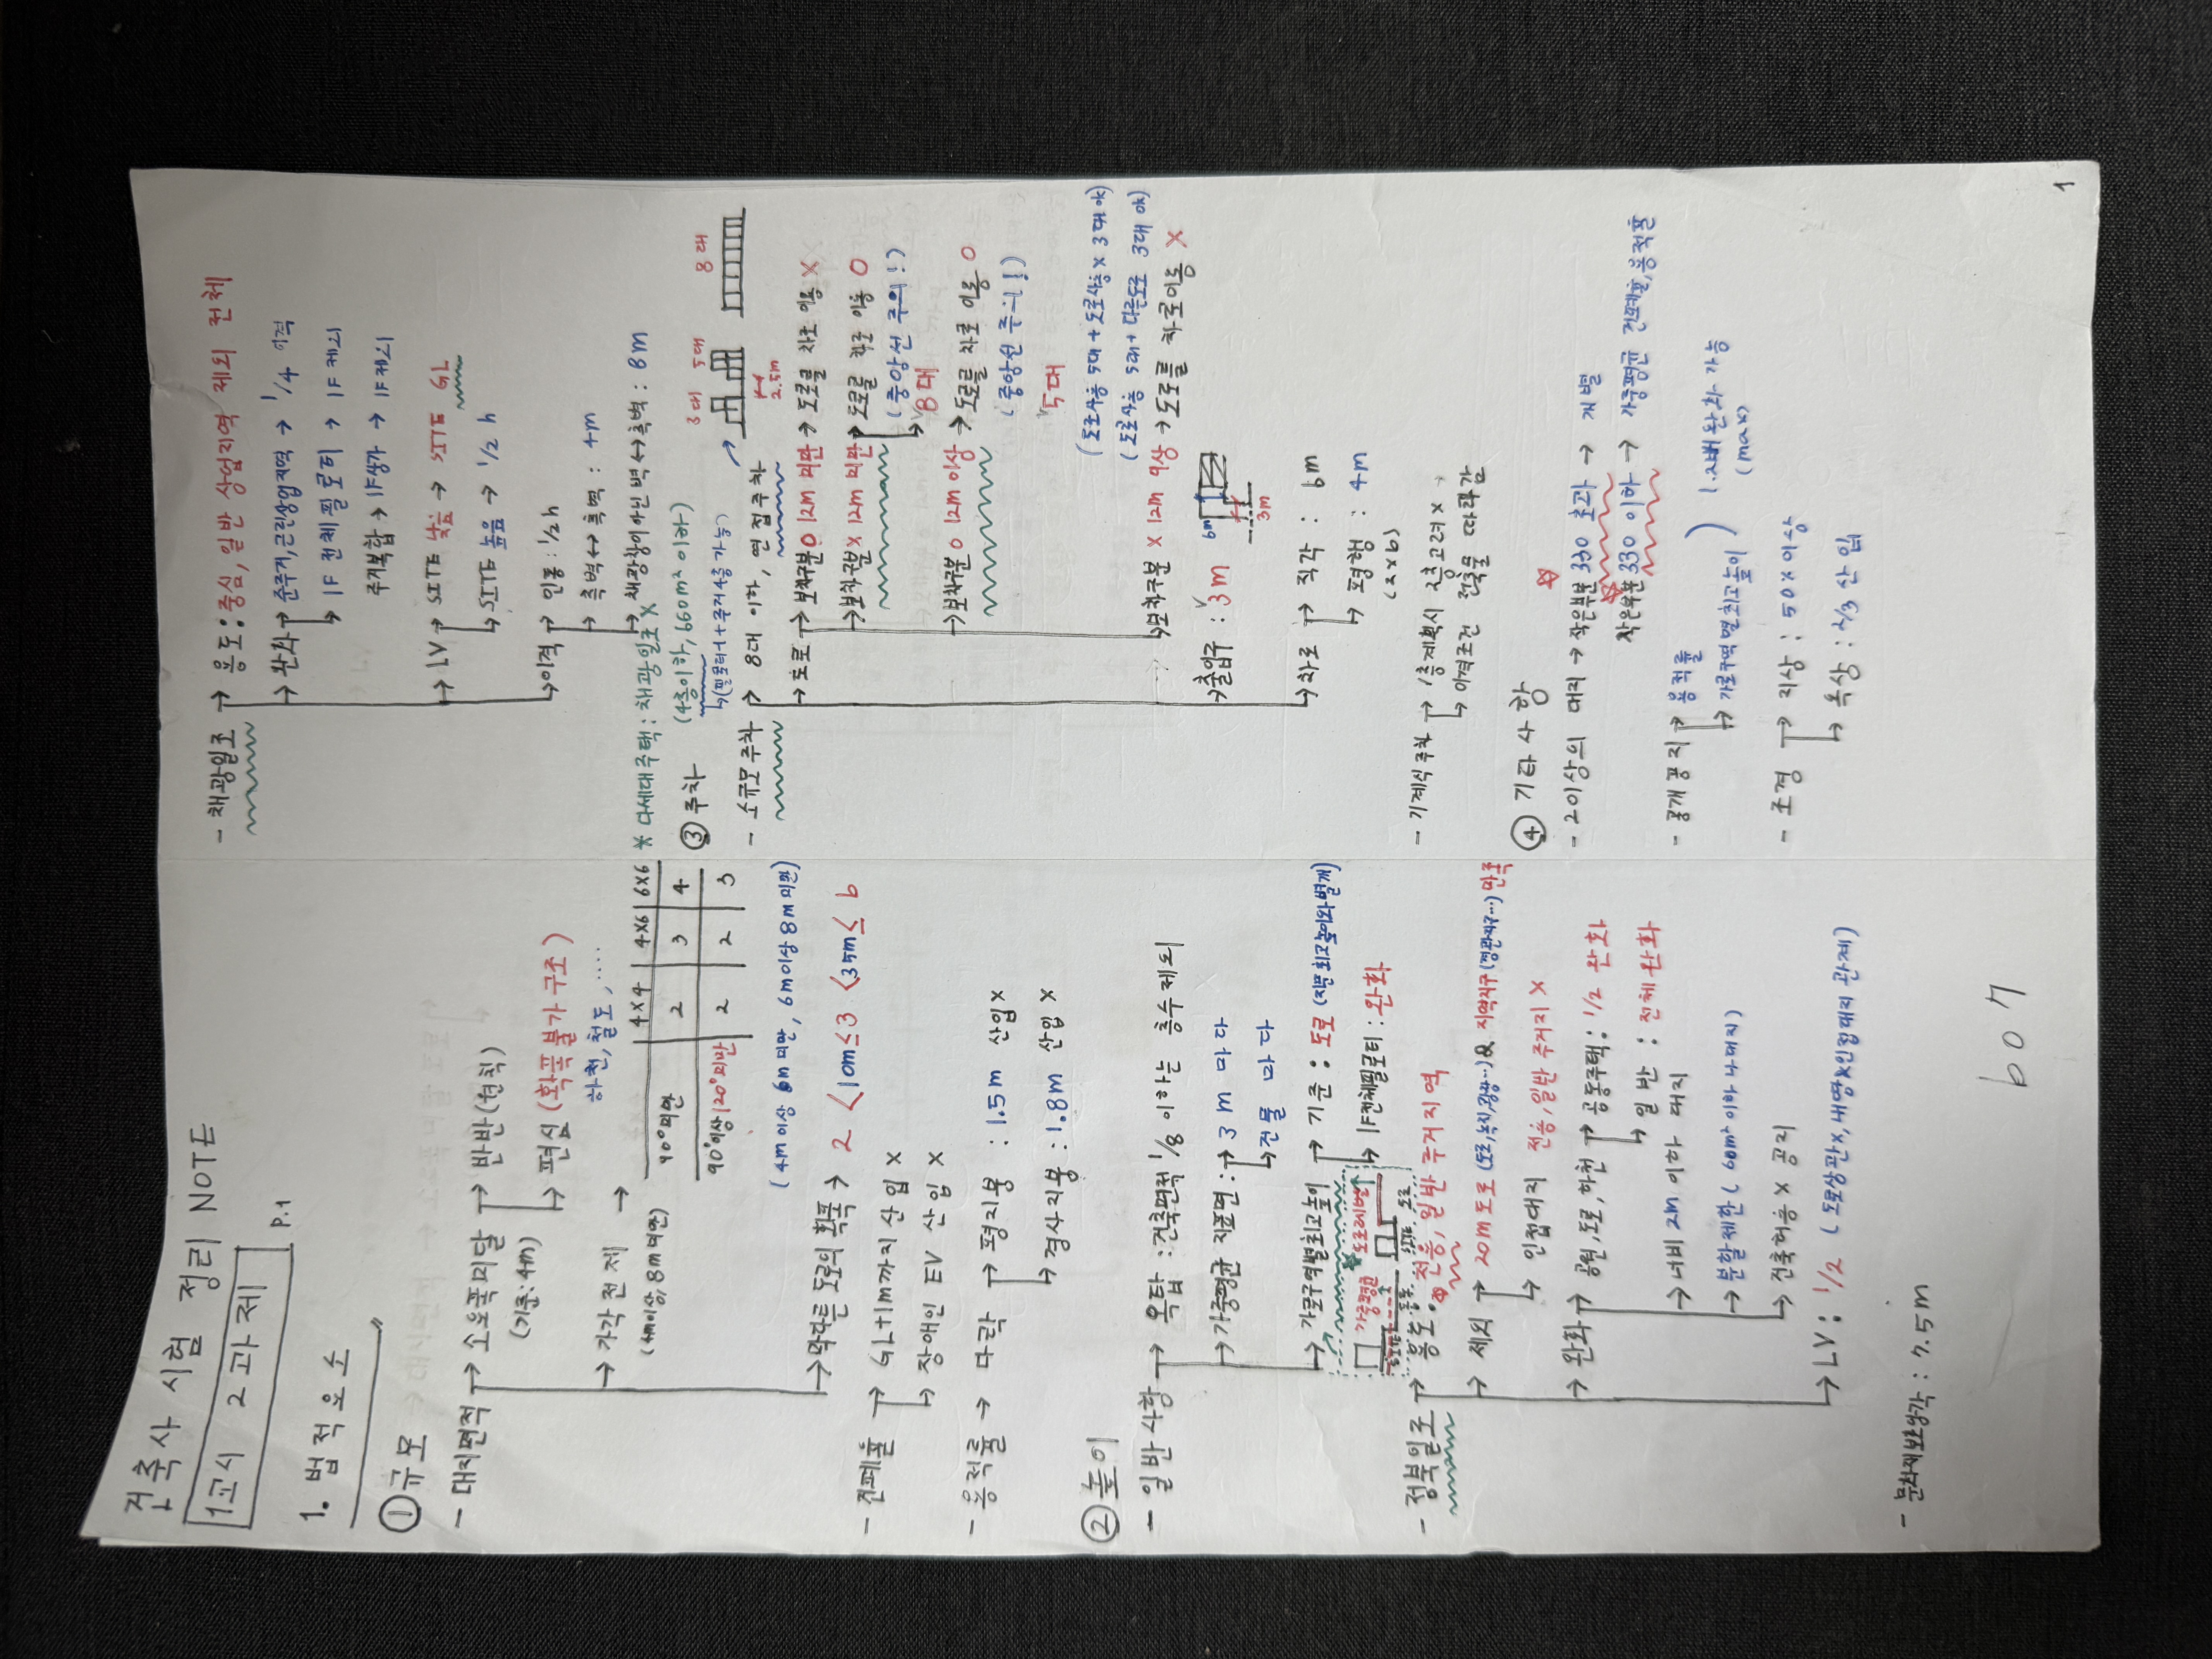 건축사 시험 정리 NOTE
1교시 2과제
P.1
1. 법적요소
① 규모
- 대지면적 → 소요폭미달 → 반반(원칙)
(기준:4m) → 편심 (확폭불가구조)
하천, 철도, ....
→ 가각전제 →
(4m이상, 8m미만)
4X4 | 4X6 | 6X6
90°미만 | 2 | 3 | 4
90°이상 120°미만 | 2 | 2 | 3
(4m이상 6m미만, 6m이상 8m미만)
→ 막다른 도로의 확폭 → 2 < 10m ≤ 3 < 35m ≤ 6
- 건폐율 → GL+1m까지 산입 X
→ 장애인 EV 산입 X
- 용적률 → 다락 → 평지붕 : 1.5m 산입 X
→ 경사지붕 : 1.8m 산입 X
② 높이
- 일반사항 → 옥탑 : 건축면적 1/8 이하는 층수 제외
→ 가중평균 지표면 : → 3m 마다
→ 건물 마다
→ 가로구역별최고높이 → 기준 : 도로 (지문 최고높이와별개)
→ 1F전체필로티 : 완화
가중평균 도로레벨
SITE 도로
- 정북일조 → 용도 : 전용, 일반 주거지역
→ 제외 → 20m 도로 (도로,녹지,광장...) & 지역지구(경관지구...) 만족
→ 인접대지 전용,일반 주거지 X
→ 완화 → 공원,도로,하천 → 공동주택 : 1/2 완화
→ 일반 : 전체완화
→ 너비 2m 이하 대지
→ 분할제한 (60m² 이하 大대지)
→ 건축허용 X 공지
→ LV : 1/2 (도로상관X, 내땅&인접대지 관계)
- 문화재보호앙각 : 7.5m
607
- 채광일조 → 용도 : 중심, 일반 상업지역 제외 전체
→ 완화 → 준주거,근린상업지역 → 1/4 이격
→ 1F 전체필로티 → 1F 제외
주거복합 → 1F상가 → 1F제외
→ LV → SITE 낮음 → SITE GL
→ SITE 높음 → 1/2 h
→ 이격 → 인동 : 1/2h
→ 측벽↔측벽 : 4m
→ 채광창이아닌 벽↔측벽 : 8m
* 다세대주택 : 채광일조 X
③ 주차 (4층이하, 660m² 이하)
→(필로티+주거4층가능)
- 소규모주차 → 8대 이하, 연접주차
3대 5대 8대
2.5m
→ 도로 → 보차구분 O 12m 미만 → 도로를 차로 이용 X
→ 보차구분 X 12m 미만 → 도로를 차로 이용 O
(중앙선 주의!)
→ 8대
→ 보차구분 O 12m 이상 → 도로를 차로 이용 O
(중앙선 주의!)
5대
(도로사용 5대 + 도로사용 X 3대 ok)
(도로사용 5대 + 다른도로 3대 ok)
→ 보차구분 X 12m 이상 → 도로를 차로이용 X
→ 출입구 : 3m
6m
3m
→ 차로 → 직각 : 6m
→ 평행형 : 4m
(2x6)
- 기계식주차 → 1층계획시 2층고려 X
→ 이격조건 건축물 따라감
④ 기타사항
- 2이상의 대지 → 작은부분 330 초과 → 개별
작은부분 330 이하 → 가중평균 건폐율,용적률
- 공개공지 → 용적률
→ 가로구역별최고높이 ) 1.2배완화가능
(max)
- 조경 → 지상 : 50% 이상
→ 옥상 : 2/3 산입
1